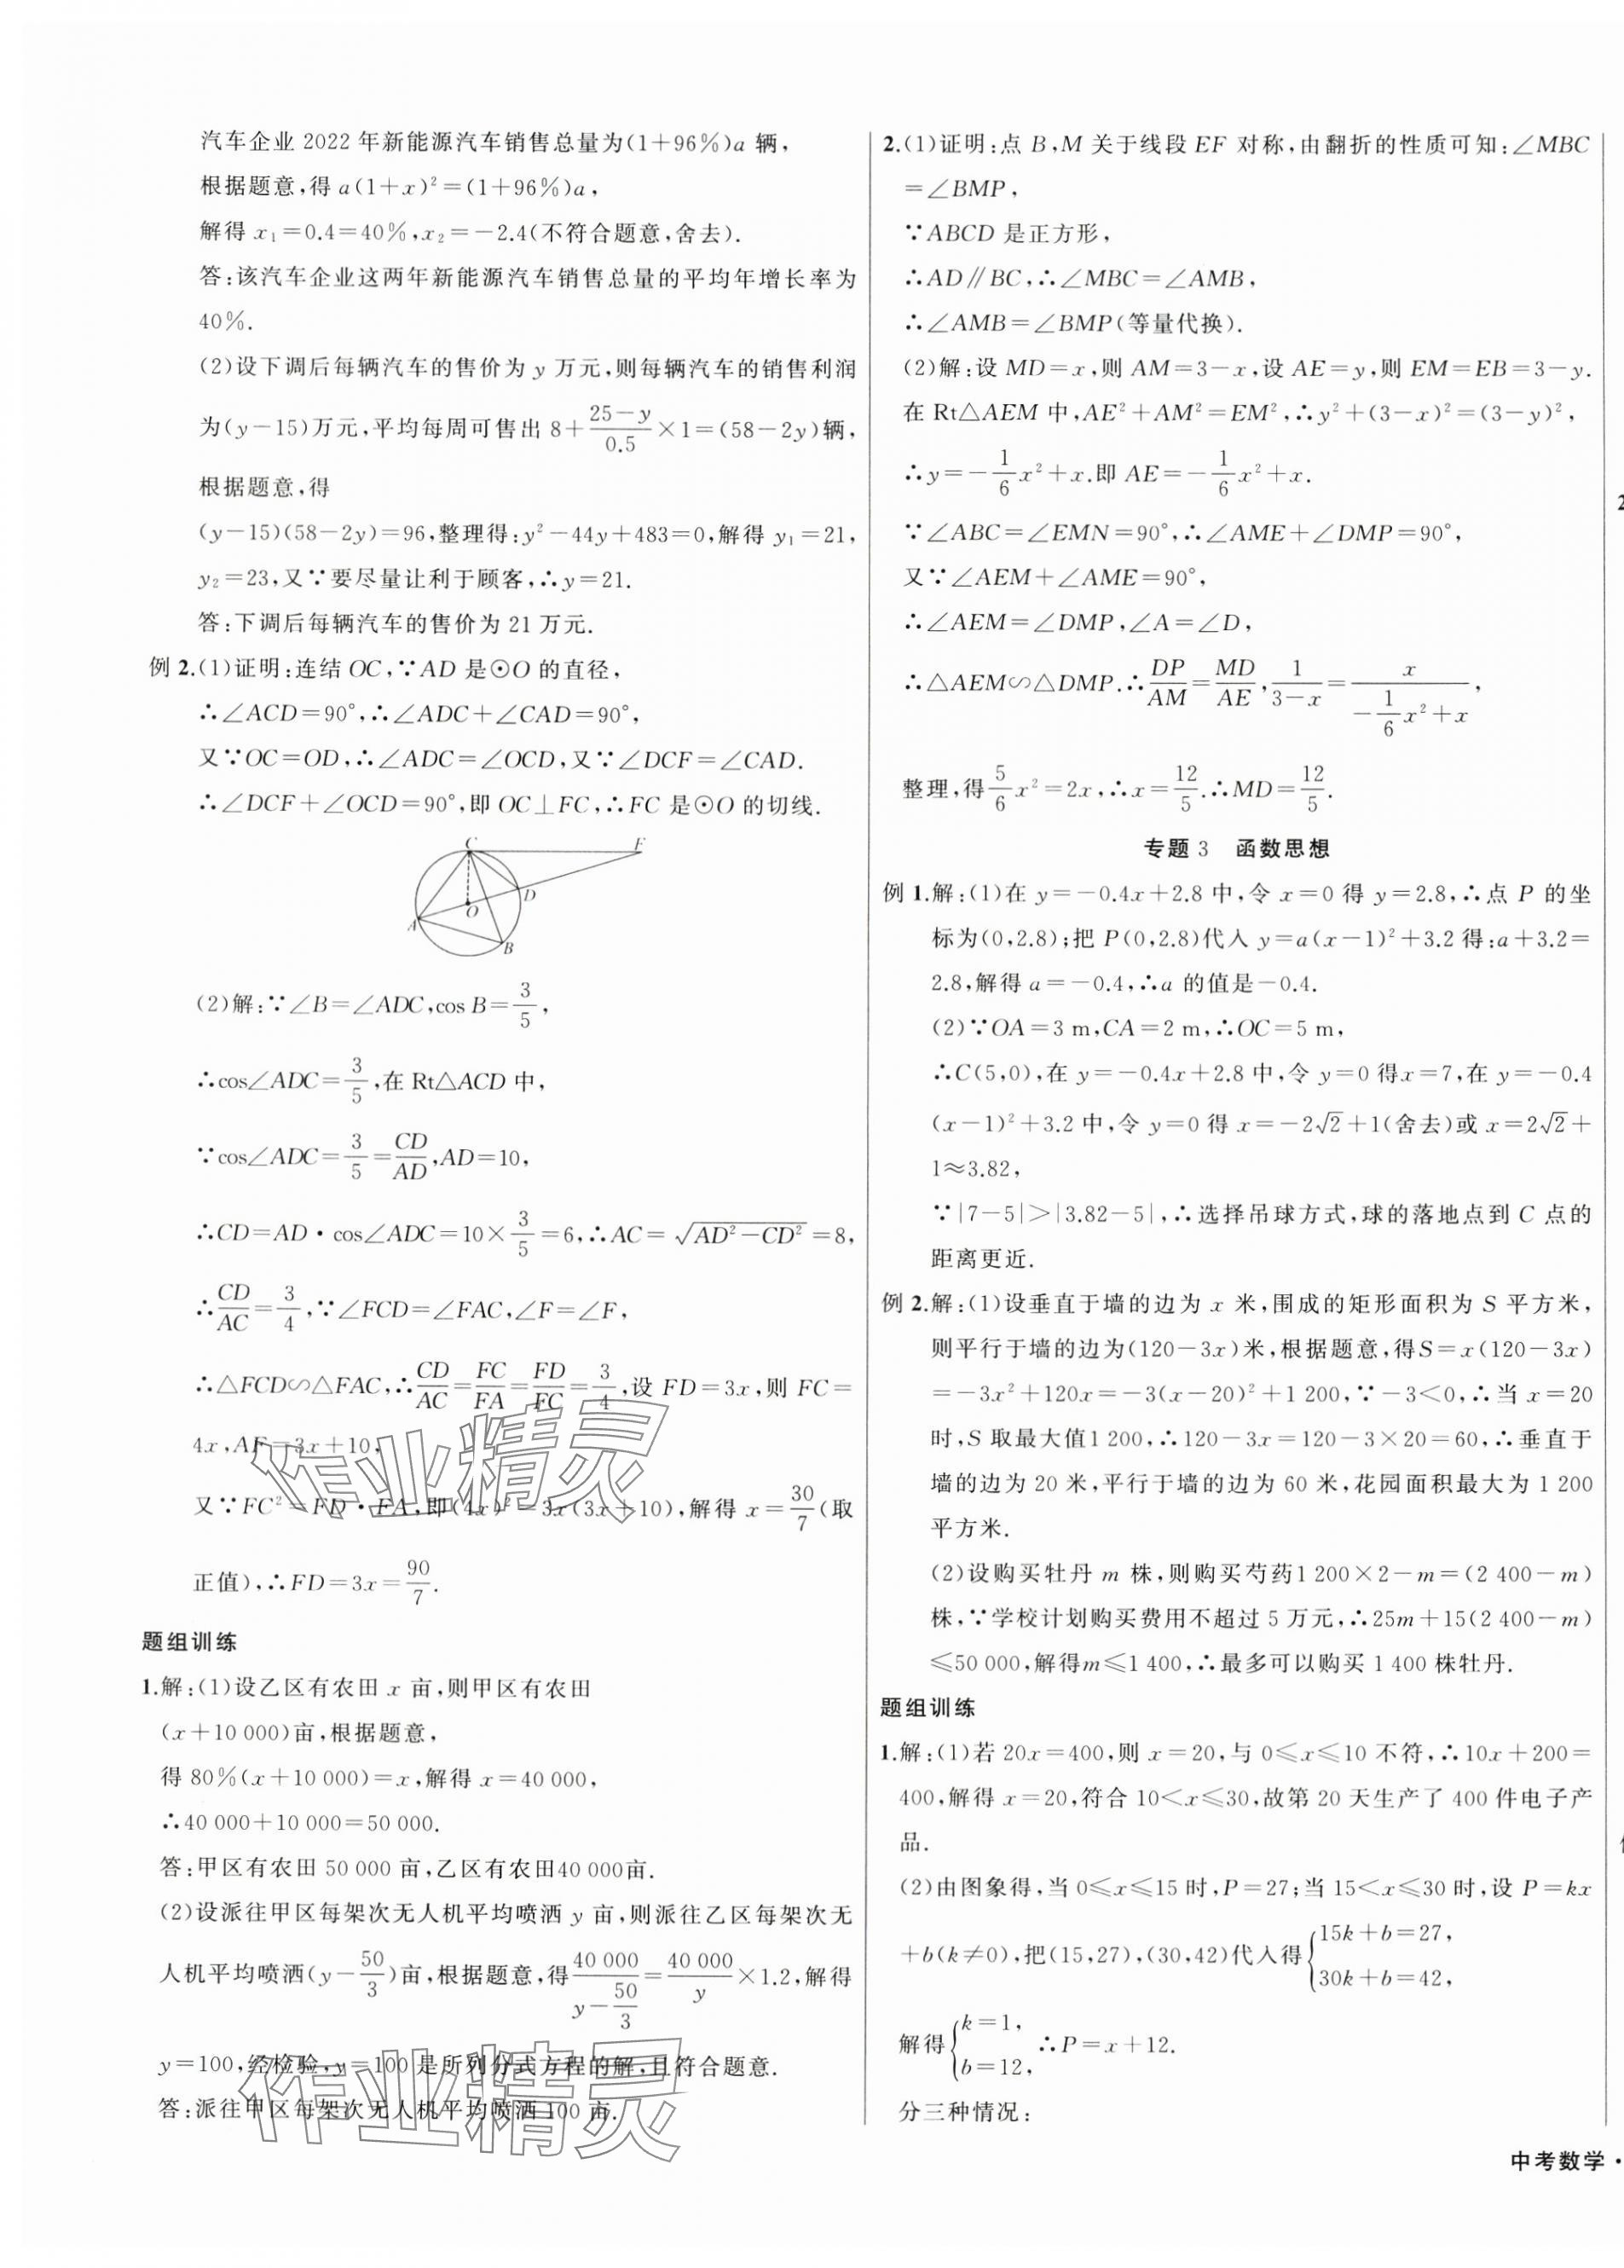 汽车企业 2022 年新能源汽车销售总量为(1+96%)a 辆,
根据题意,得 a(1+x)²=(1+96%)a,
解得 x₁=0.4=40%,x₂=-2.4(不符合题意,舍去).
答:该汽车企业这两年新能源汽车销售总量的平均年增长率为
40%.
(2)设下调后每辆汽车的售价为 y 万元,则每辆汽车的销售利润
为(y-15)万元,平均每周可售出 8+\frac{25-y}{0.5}×1=(58-2y)辆,
根据题意,得
(y-15)(58-2y)=96,整理得:y²-44y+483=0,解得 y₁=21,
y₂=23,又∵要尽量让利于顾客,∴y=21.
答:下调后每辆汽车的售价为 21 万元.
例 2.(1)证明:连结 OC,∵AD 是⊙O 的直径,
∴∠ACD=90°,∴∠ADC+∠CAD=90°,
又∵OC=OD,∴∠ADC=∠OCD,又∵∠DCF=∠CAD.
∴∠DCF+∠OCD=90°,即 OC⊥FC,∴FC 是⊙O 的切线.
C
F
D
O
A
B
(2)解:∵∠B=∠ADC,cos B=\frac{3}{5},
∴cos∠ADC=\frac{3}{5},在 Rt△ACD 中,
∵cos∠ADC=\frac{3}{5}=\frac{CD}{AD},AD=10,
∴CD=AD·cos∠ADC=10×\frac{3}{5}=6,∴AC=\sqrt{AD²-CD²}=8,
∴\frac{CD}{AC}=\frac{3}{4},∵∠FCD=∠FAC,∠F=∠F,
∴△FCD∽△FAC,∴\frac{CD}{AC}=\frac{FC}{FA}=\frac{FD}{FC}=\frac{3}{4},设 FD=3x,则 FC=
4x,AF=3x+10,
又∵FC²=FD·FA,即(4x)²=3x(3x+10),解得 x=\frac{30}{7}(取
正值),∴FD=3x=\frac{90}{7}.
题组训练
1.解:(1)设乙区有农田 x 亩,则甲区有农田
(x+10 000)亩,根据题意,
得 80%(x+10 000)=x,解得 x=40 000,
∴40 000+10 000=50 000.
答:甲区有农田 50 000 亩,乙区有农田40 000亩.
(2)设派往甲区每架次无人机平均喷洒 y 亩,则派往乙区每架次无
人机平均喷洒(y-\frac{50}{3})亩,根据题意,得\frac{40 000}{y-\frac{50}{3}}=\frac{40 000}{y}×1.2,解得
y=100,经检验,y=100 是所列分式方程的解,且符合题意.
答:派往甲区每架次无人机平均喷洒 100 亩.
作业精灵
作业精灵
2.(1)证明:点 B,M 关于线段 EF 对称,由翻折的性质可知:∠MBC
=∠BMP,
∵ABCD 是正方形,
∴AD∥BC,∴∠MBC=∠AMB,
∴∠AMB=∠BMP(等量代换).
(2)解:设 MD=x,则 AM=3-x,设 AE=y,则 EM=EB=3-y.
在 Rt△AEM 中,AE²+AM²=EM²,∴y²+(3-x)²=(3-y)²,
∴y=-\frac{1}{6}x²+x.即 AE=-\frac{1}{6}x²+x.
∵∠ABC=∠EMN=90°,∴∠AME+∠DMP=90°,
又∵∠AEM+∠AME=90°,
∴∠AEM=∠DMP,∠A=∠D,
∴△AEM∽△DMP.∴\frac{DP}{AM}=\frac{MD}{AE},\frac{1}{3-x}=\frac{x}{-\frac{1}{6}x²+x},
整理,得\frac{5}{6}x²=2x,∴x=\frac{12}{5}.∴MD=\frac{12}{5}.
专题 3 函数思想
例 1.解:(1)在 y=-0.4x+2.8 中,令 x=0 得 y=2.8,∴点 P 的坐
标为(0,2.8);把 P(0,2.8)代入 y=a(x-1)²+3.2 得:a+3.2=
2.8,解得 a=-0.4,∴a 的值是-0.4.
(2)∵OA=3 m,CA=2 m,∴OC=5 m,
∴C(5,0),在 y=-0.4x+2.8 中,令 y=0 得x=7,在 y=-0.4
(x-1)²+3.2 中,令 y=0 得 x=-2√2+1(舍去)或 x=2√2+
1≈3.82,
∵|7-5|>|3.82-5|,∴选择吊球方式,球的落地点到 C 点的
距离更近.
例 2.解:(1)设垂直于墙的边为 x 米,围成的矩形面积为 S 平方米,
则平行于墙的边为(120-3x)米,根据题意,得S=x(120-3x)
=-3x²+120x=-3(x-20)²+1 200,∵-3<0,∴当 x=20
时,S 取最大值1 200,∴120-3x=120-3×20=60,∴垂直于
墙的边为 20 米,平行于墙的边为 60 米,花园面积最大为 1 200
平方米.
(2)设购买牡丹 m 株,则购买芍药1 200×2-m=(2 400-m)
株,∵学校计划购买费用不超过 5 万元,∴25m+15(2 400-m)
≤50 000,解得m≤1 400,∴最多可以购买 1 400 株牡丹.
题组训练
1.解:(1)若 20x=400,则 x=20,与 0≤x≤10 不符,∴10x+200=
400,解得 x=20,符合 10<x≤30,故第 20 天生产了 400 件电子产
品.
(2)由图象得,当 0≤x≤15 时,P=27;当 15<x≤30 时,设 P=kx
+b(k≠0),把(15,27),(30,42)代入得{15k+b=27, 30k+b=42,
解得{k=1, b=12, ∴P=x+12.
分三种情况:
中考数学·